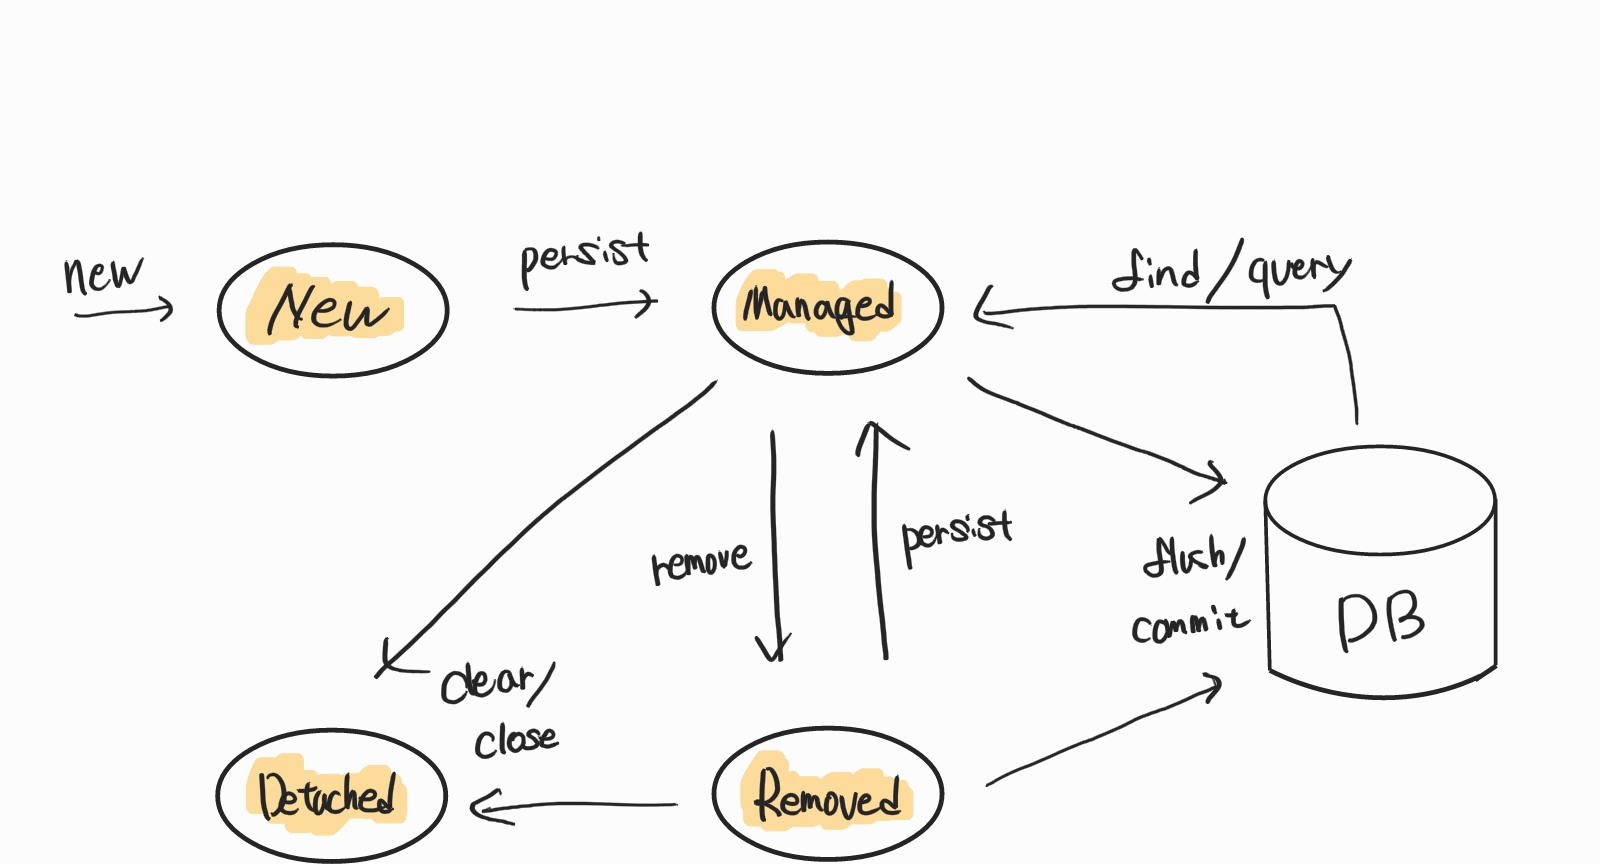 new
New
persist
Managed
find/query
remove
persist
flush/
commit
DB
clear/
close
Detached
Removed